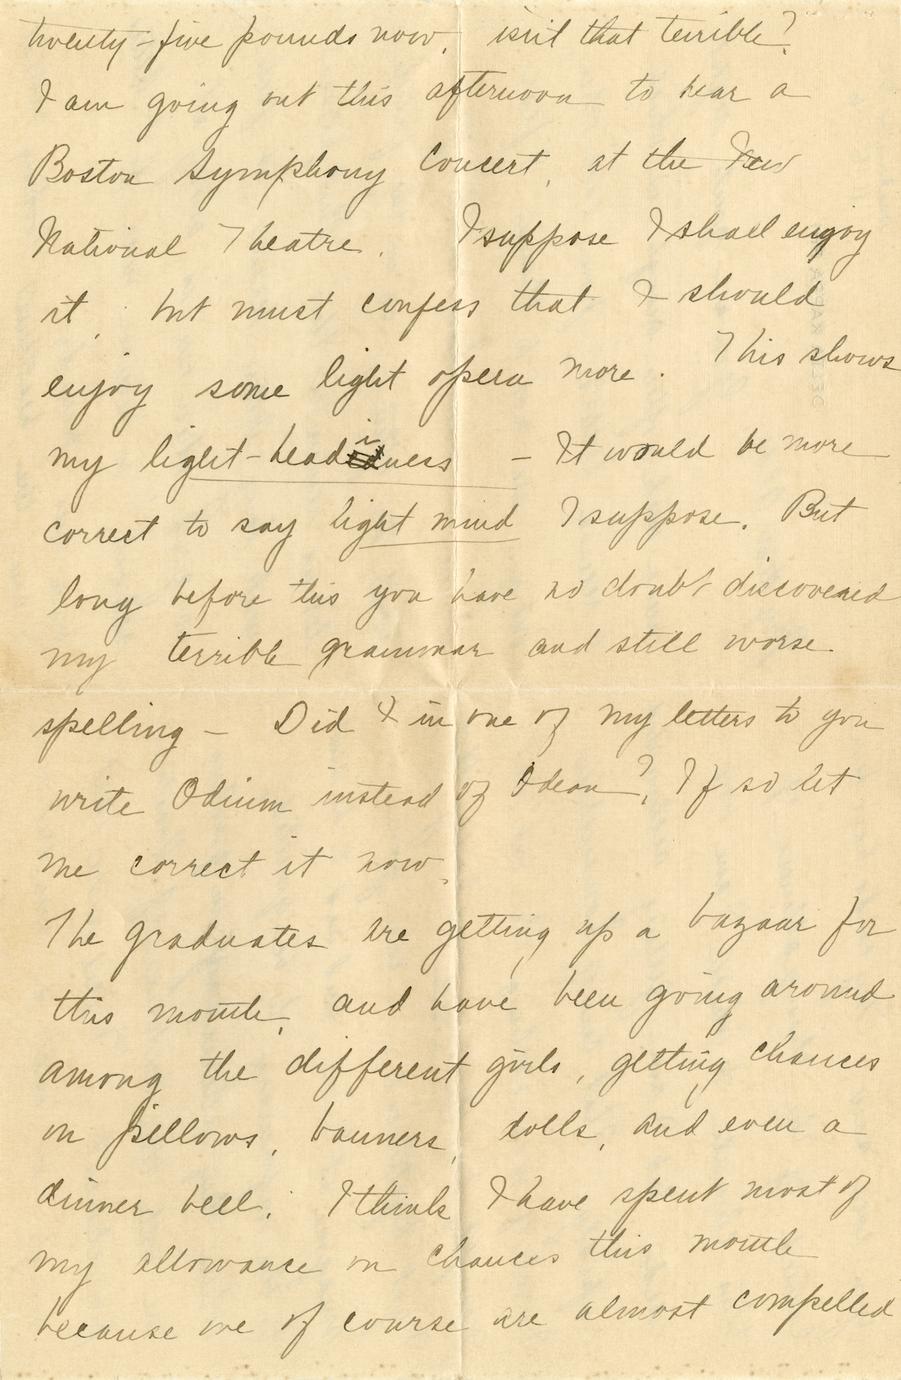 twenty-five pounds now, isn't that terrible?
I am going out this afternoon to hear a
Boston Symphony Concert, at the New
National Theatre. I suppose I shall enjoy
it, but must confess that I should
enjoy some light opera more. This shows
my light-headiness - It would be more
correct to say light mind I suppose. But
long before this you have no doubt discovered
my terrible grammar and still worse
spelling - Did I in one of my letters to you
write Odium instead of Odeon?, If so let
me correct it now.
The graduates are getting up a bazaar for
this month, and have been going around
among the different girls, getting chances
on pillows, banners, dolls, and even a
dinner bell. I think I have spent most of
my allowance on chances this month
because we of course are almost compelled